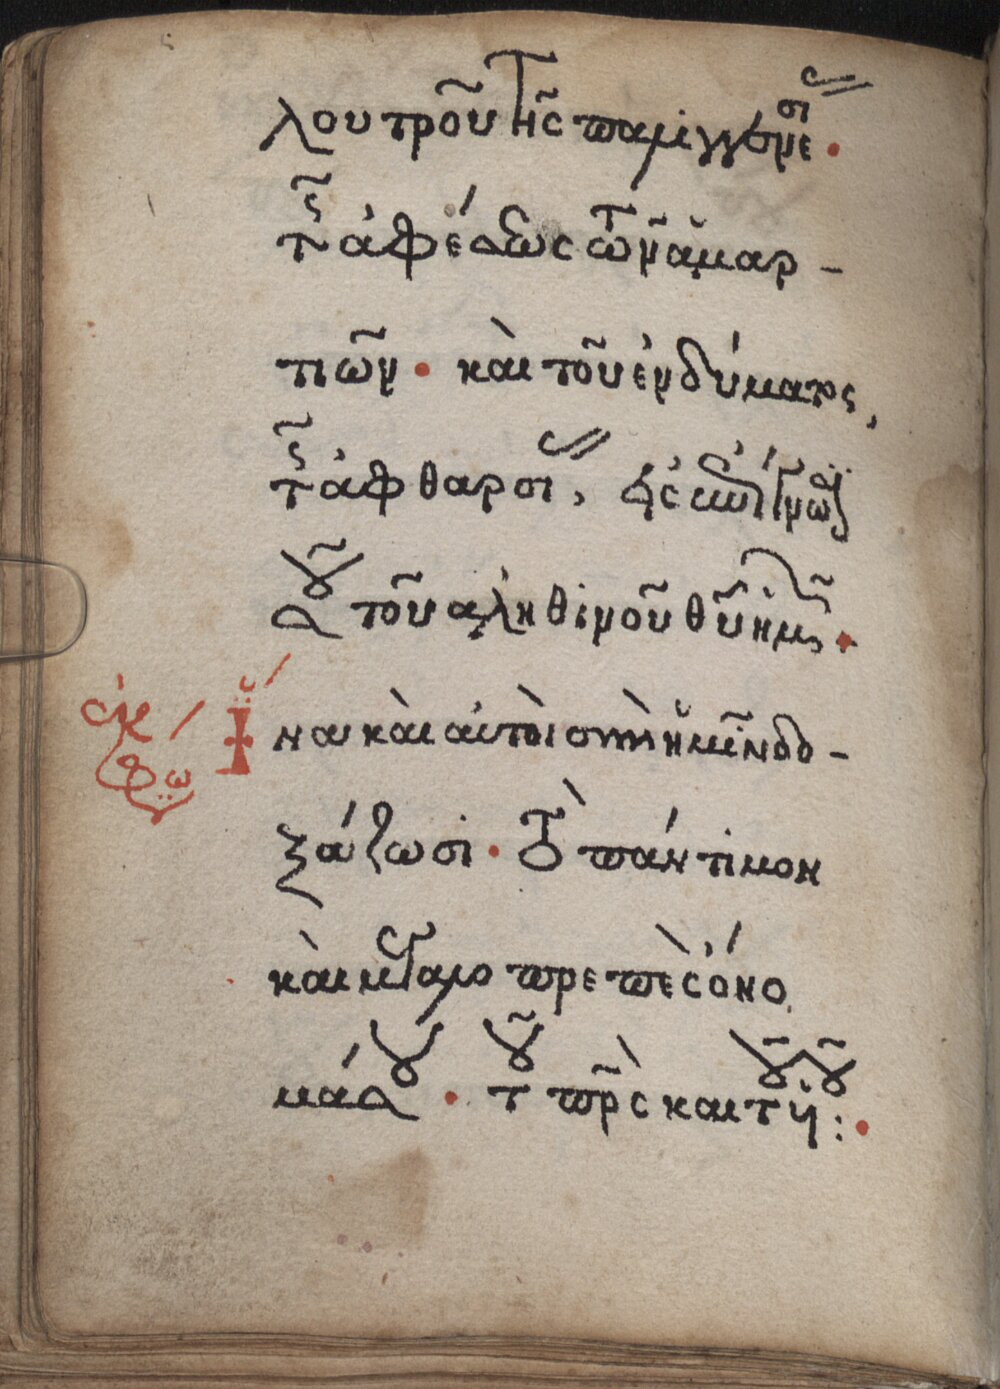 λουτροῦ τῆς παλιγγενεσί(ας)·
τῆς ἀφέσεως τῶν ἁμαρ-
τιῶν· καὶ τοῦ ἐνδύματος
τῆς ἀφθαρσί(ας), εἰς ἐπίγνωσίν
σου τοῦ ἀληθινοῦ θ(εο)ῦ ἡμῶν·
ἐκφώ Ἵνα καὶ αὐτοὶ σὺν ἡμῖν δο-
ξάζωσι· τὸ πάντιμον
καὶ μεγαλοπρεπὲς ὄνο
μά σου· τοῦ π(α)τρ(ὸ)ς καὶ τοῦ υἱοῦ:·